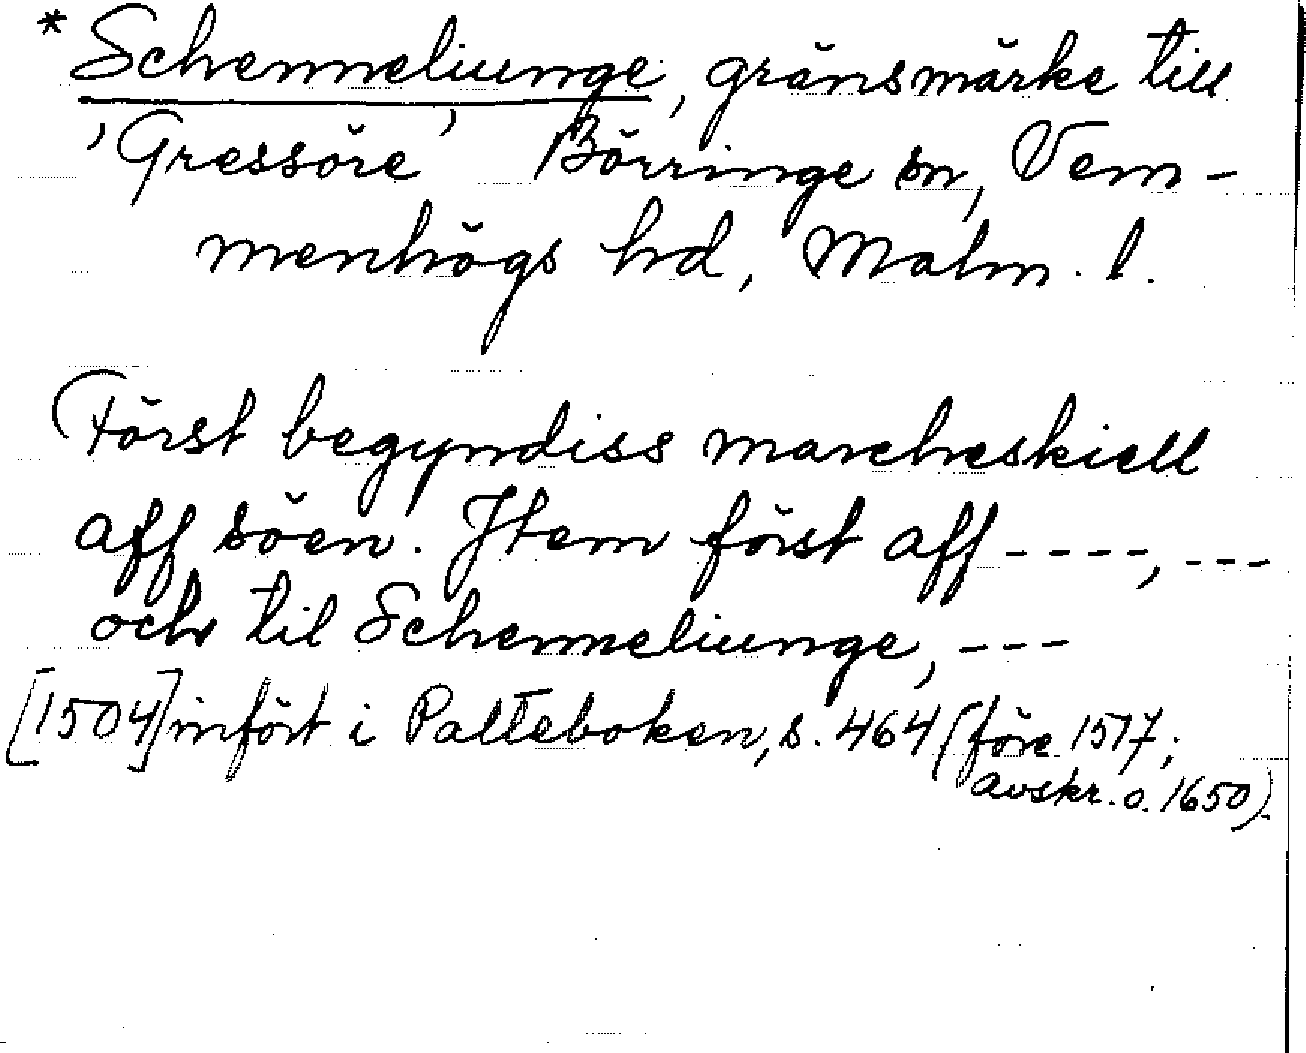 * Schenneliunge, gränsmärke till
'Gressöre' Börringe sn, Vem-
menhögs hd, Malm. l.
Först begyndiss marcheskiell
aff söen. Jtem först aff ----, ---
och til Schenneliunge, ---
[1504] infört i Palteboken, s. 464 (före 1517;
avskr. o. 1650).